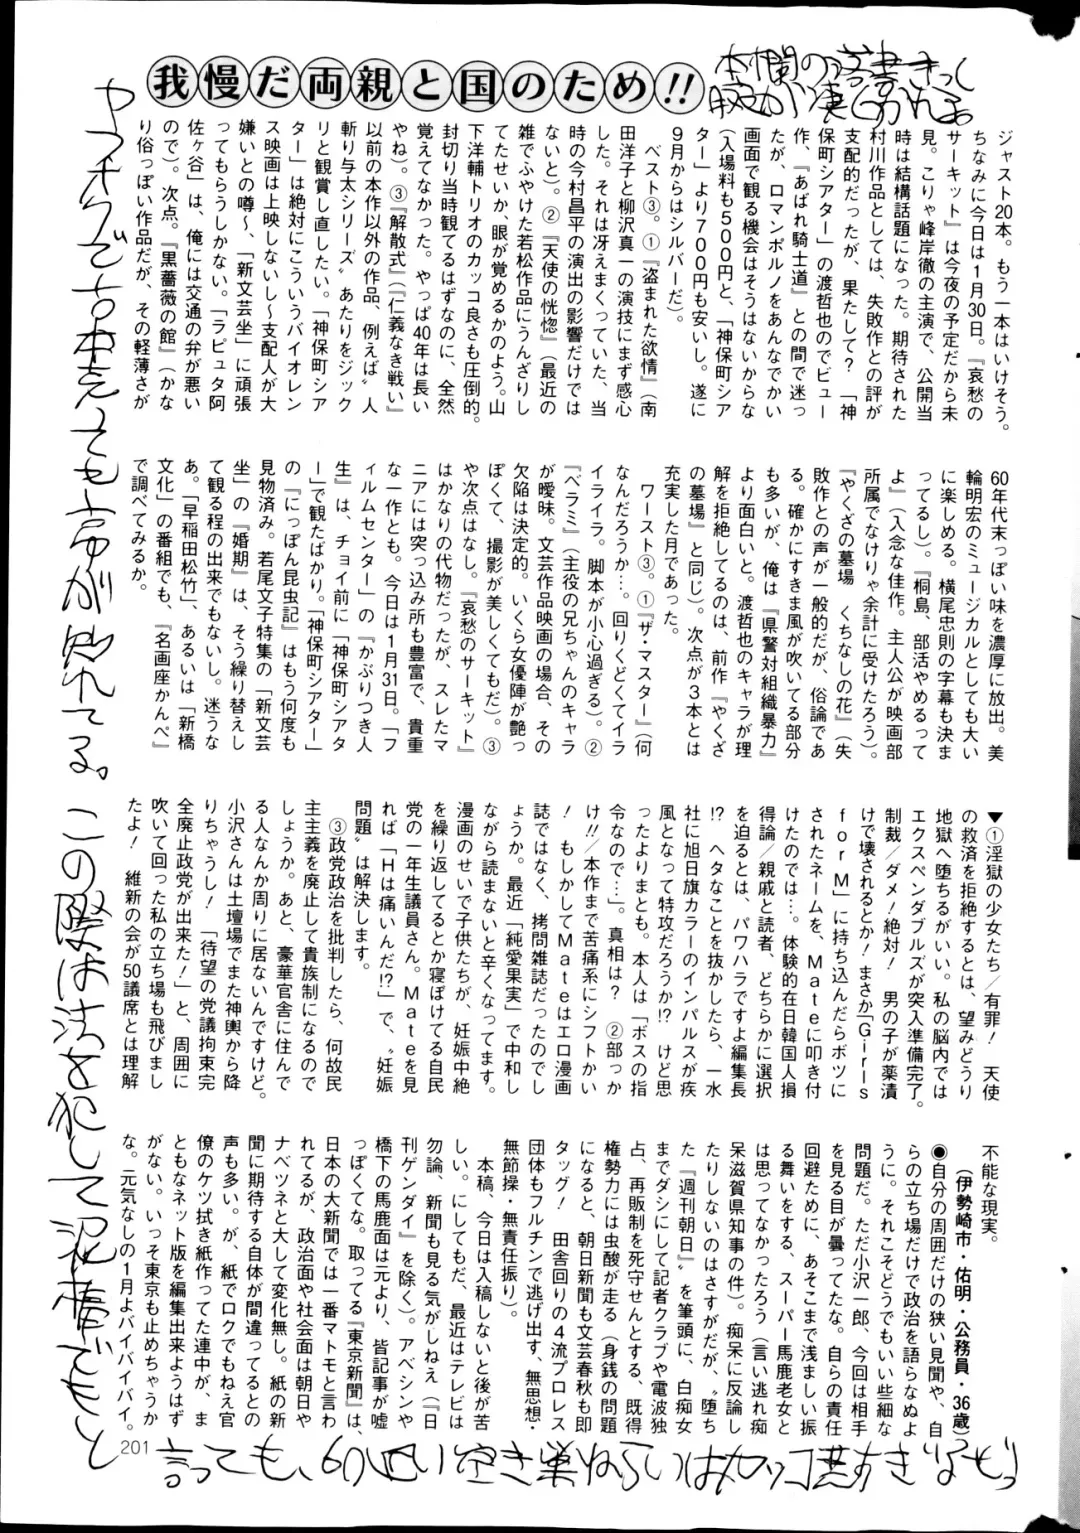 我慢だ両親と国のため!!
ジャスト20本。もう一本はいけそう。
ちなみに今日は1月30日。『哀愁の
サーキット』は今夜の予定だから未
見。こりゃ峰岸徹の主演で、公開当
時は結構話題になった。期待された
村川作品としては、失敗作との評が
支配的だったが、果たして?　「神
保町シアター」の渡哲也のでビュー
作、『あばれ騎士道』との間で迷っ
たが、ロマンポルノをあんなでかい
画面で観る機会はそうはないからな
(入場料も500円と、「神保町シア
ター」より700円も安いし。遂に
9月からはシルバーだ)。
ベスト③。①『盗まれた欲情』(南
田洋子と柳沢真一の演技にまず感心
した。それは冴えまくっていた、当
時の今村昌平の演出の影響だけでは
ないと)。②『天使の恍惚』(最近の
雑でふやけた若松作品にうんざりし
てたせいか、眼が覚めるかのよう。山
下洋輔トリオのカッコ良さも圧倒的。
封切り当時観てるはずなのに、全然
覚えてなかった。やっぱ40年は長い
やね)。③『解散式』(『仁義なき戦い』
以前の本作以外の作品、例えば〝人
斬り与太シリーズ〟あたりをジック
リと観賞し直したい。「神保町シア
ター」は絶対にこういうバイオレン
ス映画は上映しないし~支配人が大
嫌いとの噂~、「新文芸坐」に頑張
ってもらうしかない。「ラピュタ阿
佐ヶ谷」は、俺には交通の弁が悪い
ので)。次点。『黒薔薇の館』(かな
り俗っぽい作品だが、その軽薄さが
60年代末っぽい味を濃厚に放出。美
輪明宏のミュージカルとしても大い
に楽しめる。横尾忠則の字幕も決ま
ってるし)。『桐島、部活やめるって
よ』(入念な佳作。主人公が映画部
所属でなけりゃ余計に受けたろう)。
『やくざの墓場　くちなしの花』(失
敗作との声が一般的だが、俗論であ
る。確かにすきま風が吹いてる部分
も多いが、俺は『県警対組織暴力』
より面白いと。渡哲也のキャラが理
解を拒絶してるのは、前作『やくざ
の墓場』と同じ)。次点が3本とは
充実した月であった。
ワースト③。①『ザ・マスター』(何
なんだろうか…。回りくどくてイラ
イライラ。脚本が小心過ぎる)。②
『ベラミ』(主役の兄ちゃんのキャラ
が曖昧。文芸作品映画の場合、その
欠陥は決定的。いくら女優陣が艶っ
ぽくて、撮影が美しくてもだ)。③
や次点はなし。『哀愁のサーキット』
はかなりの代物だったが、スレたマ
ニアには突っ込み所も豊富で、貴重
な一作とも。今日は1月31日。「フ
ィルムセンター」の『かぶりつき人
生』は、チョイ前に「神保町シアタ
ー」で観たばかり。「神保町シアター」
の『にっぽん昆虫記』はもう何度も
見物済み。若尾文子特集の「新文芸
坐」の『婚期』は、そう繰り替えし
て観る程の出来でもないし。迷うな
あ。「早稲田松竹」、あるいは「新橋
文化」の番組でも、『名画座かんぺ』
で調べてみるか。
▼①淫獄の少女たち/有罪!　天使
の救済を拒絶するとは、望みどうり
地獄へ堕ちるがいい。私の脳内では
エクスペンダブルズが突入準備完了。
制裁/ダメ!絶対!　男の子が薬漬
けで壊されるとか!まさか「Girls
forM」に持ち込んだらボツに
されたネームを、Mateに叩き付
けたのでは…。体験的在日韓国人損
得論/親戚と読者、どちらかに選択
を迫るとは、パワハラですよ編集長
!?　ヘタなことを抜かしたら、一水
社に旭日旗カラーのインパルスが疾
風となって特攻だろうか!?　けど思
ったよりまとも。本人は「ボスの指
令なので…」。真相は?　②部っか
け!!/本作まで苦痛系にシフトかい
!　もしかしてMateはエロ漫画
誌ではなく、拷問雑誌だったのでし
ょうか。最近「純愛果実」で中和し
ながら読まないと辛くなってます。
漫画のせいで子供たちが、妊娠中絶
を繰り返してるとか寝ぼけてる自民
党の一年生議員さん。Mateを見
れば「Hは痛いんだ!?」で、〝妊娠
問題〟は解決します。
③政党政治を批判したら、何故民
主主義を廃止して貴族制になるので
しょうか。あと、豪華官舎に住んで
る人なんか周りに居ないんですけど。
小沢さんは土壇場でまた神輿から降
りちゃうし!　「待望の党議拘束完
全廃止政党が出来た!」と、周囲に
吹いて回った私の立ち場も飛びまし
たよ!　維新の会が50議席とは理解
不能な現実。
(伊勢崎市・佑明・公務員・36歳)
●自分の周囲だけの狭い見聞や、自
らの立ち場だけで政治を語らなぬよ
うに。それこそどうでもいい些細な
問題だ。ただ小沢一郎、今回は相手
を見る目が曇ってたな。自らの責任
回避ために、あそこまで浅ましい振
る舞いをする、スーパー馬鹿老女と
は思ってなかったろう(言い逃れ痴
呆滋賀県知事の件)。痴呆に反論し
たりしないのはさすがだが、〝堕ち
た『週刊朝日』〟を筆頭に、白痴女
までダシにして記者クラブや電波独
占、再販制を死守せんとする、既得
権勢力には虫酸が走る(身銭の問題
になると、朝日新聞も文芸春秋も即
タッグ!　田舎回りの4流プロレス
団体もフルチンで逃げ出す、無思想・
無節操・無責任振り)。
本稿、今日は入稿しないと後が苦
しい。にしてもだ、最近はテレビは
勿論、新聞も見る気がしねえ(『日
刊ゲンダイ』を除く)。アベシンや
橋下の馬鹿面は元より、皆記事が嘘
っぽくてな。取ってる『東京新聞』は、
日本の大新聞では一番マトモと言わ
れてるが、政治面や社会面は朝日や
ナベツネと大して変化無し。紙の新
聞に期待する自体が間違ってるとの
声も多い。が、紙でロクでもねえ官
僚のケツ拭き紙作ってた連中が、ま
ともなネット版を編集出来ようはず
がない。いっそ東京も止めちゃうか
な。元気なしの1月よバイバイバイ。
201
この際は法を犯して
言っても、60近い空き巣ねらいはカッコ悪すぎ